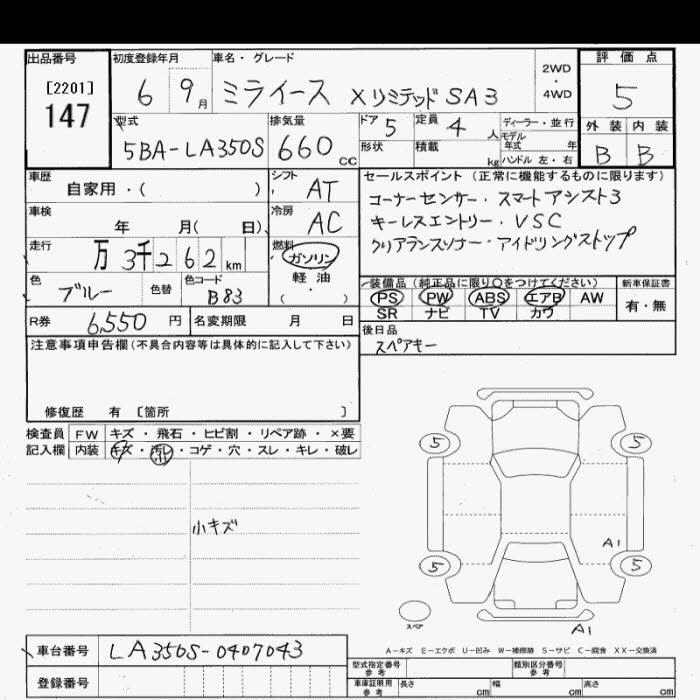 出品番号 初度登録年月 車名・グレード 2WD・4WD 評価点
[2201]
147
6 9月 ミライース Xリミテッド SA3 5
型式 排気量 ドア 定員 ディーラー・並行 外装 内装
5BA-LA350S 660cc 5 4人 モデル年式 年 B B
形状 積載 kg ハンドル 左・右
車歴 自家用・( ) シフト AT
セールスポイント (正常に機能するものに限ります)
コーナーセンサー・スマートアシスト3
キーレスエントリー・VSC
クリアランスソナー・アイドリングストップ
車検 年 月( 日) 冷房 AC
走行 万 3千262km 燃料 ガソリン 軽油 ( ・ )
色 ブルー 色替 色コード B83
装備品 (純正品に限り○をつけてください) 新車保証書
PS PW ABS エアB AW 有・無
SR ナビ TV カワ
R券 6,550円 名変期限 月 日
後日品
スペアキー
注意事項申告欄(不具合内容等は具体的に記入して下さい)
修復歴 有 [箇所 ]
検査員 FW キズ・飛石・ヒビ割・リペア跡・×要
記入欄 内装 キズ・汚レ・コゲ・穴・スレ・キレ・破レ
小キズ
5 5
A1
5 5
スペア A1
A-キズ E-エクボ U-凹み W-補修跡 S-サビ C-腐食 XX-交換済
車台番号 LA350S-0407043
型式指定番号 参考 類別区分番号 参考
登録番号
車庫証明用 参考 長さ cm 幅 cm 高さ cm